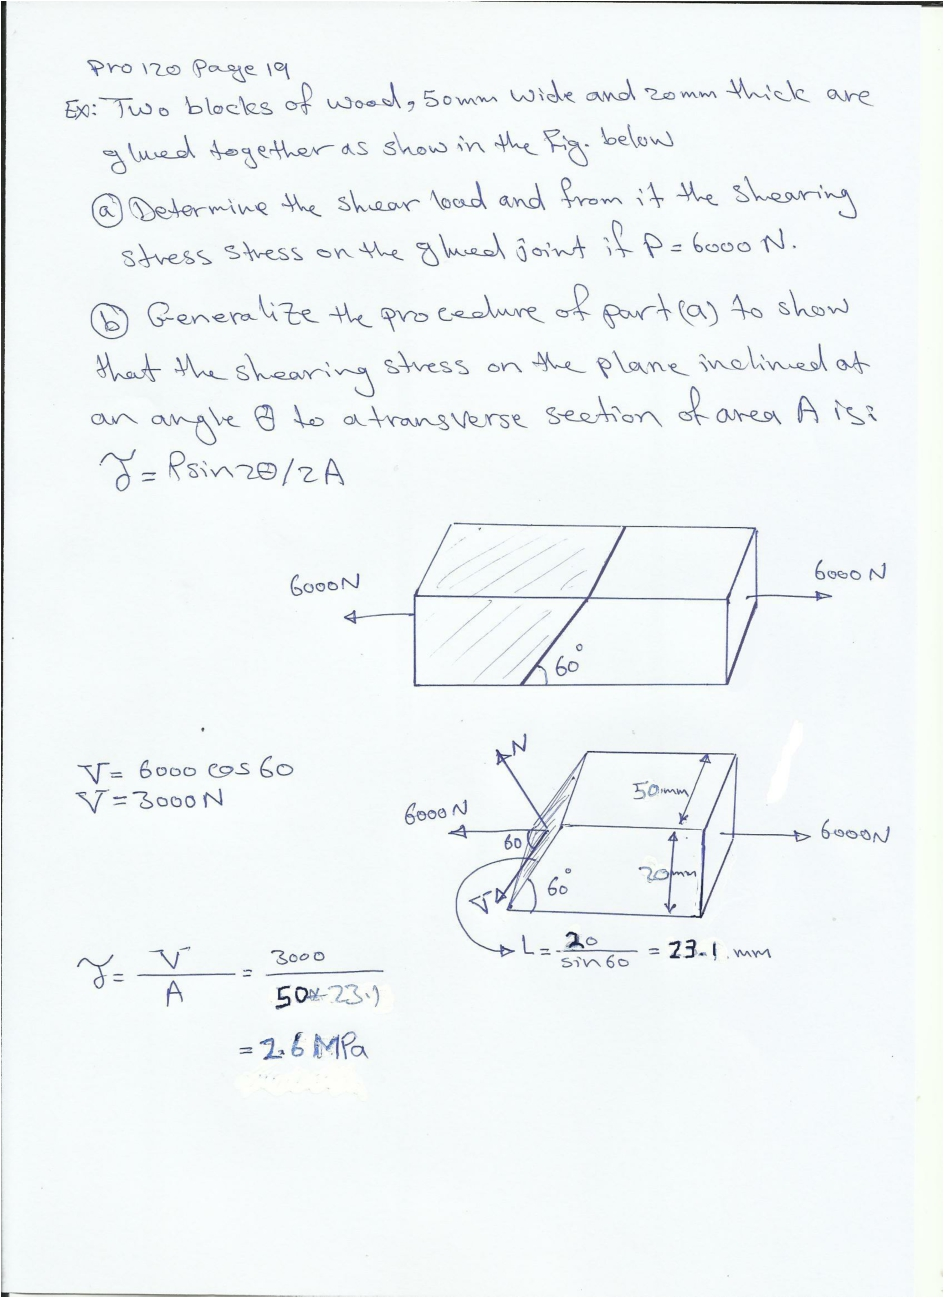 Pro 120 Page 19
Ex: Two blocks of wood, 50mm wide and 20mm thick are
glued together as show in the Fig. below
(a) Determine the shear load and from it the shearing
stress stress on the glued joint if P = 6000 N.
(b) Generalize the procedure of part (a) to show
that the shearing stress on the plane inclined at
an angle θ to a transverse section of area A is:
τ = Psin2θ/2A
6000N
6000 N
60°
V = 6000 cos 60
V = 3000 N
N
50mm
6000 N
6000N
60
60°
20mm
V
L = 20/sin 60 = 23.1 mm
τ = V/A = 3000/50*23.1
= 2.6 MPa